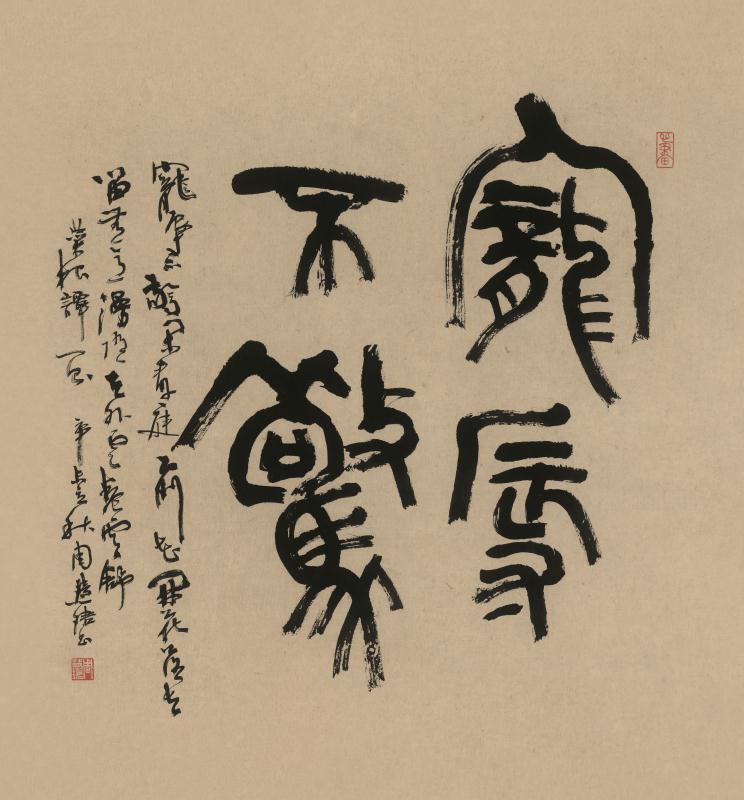 寵辱
不驚
寵辱不驚閑看庭前花開花落去
留無意漫隨天外云卷雲舒
菜根譚句 辛丑秋周